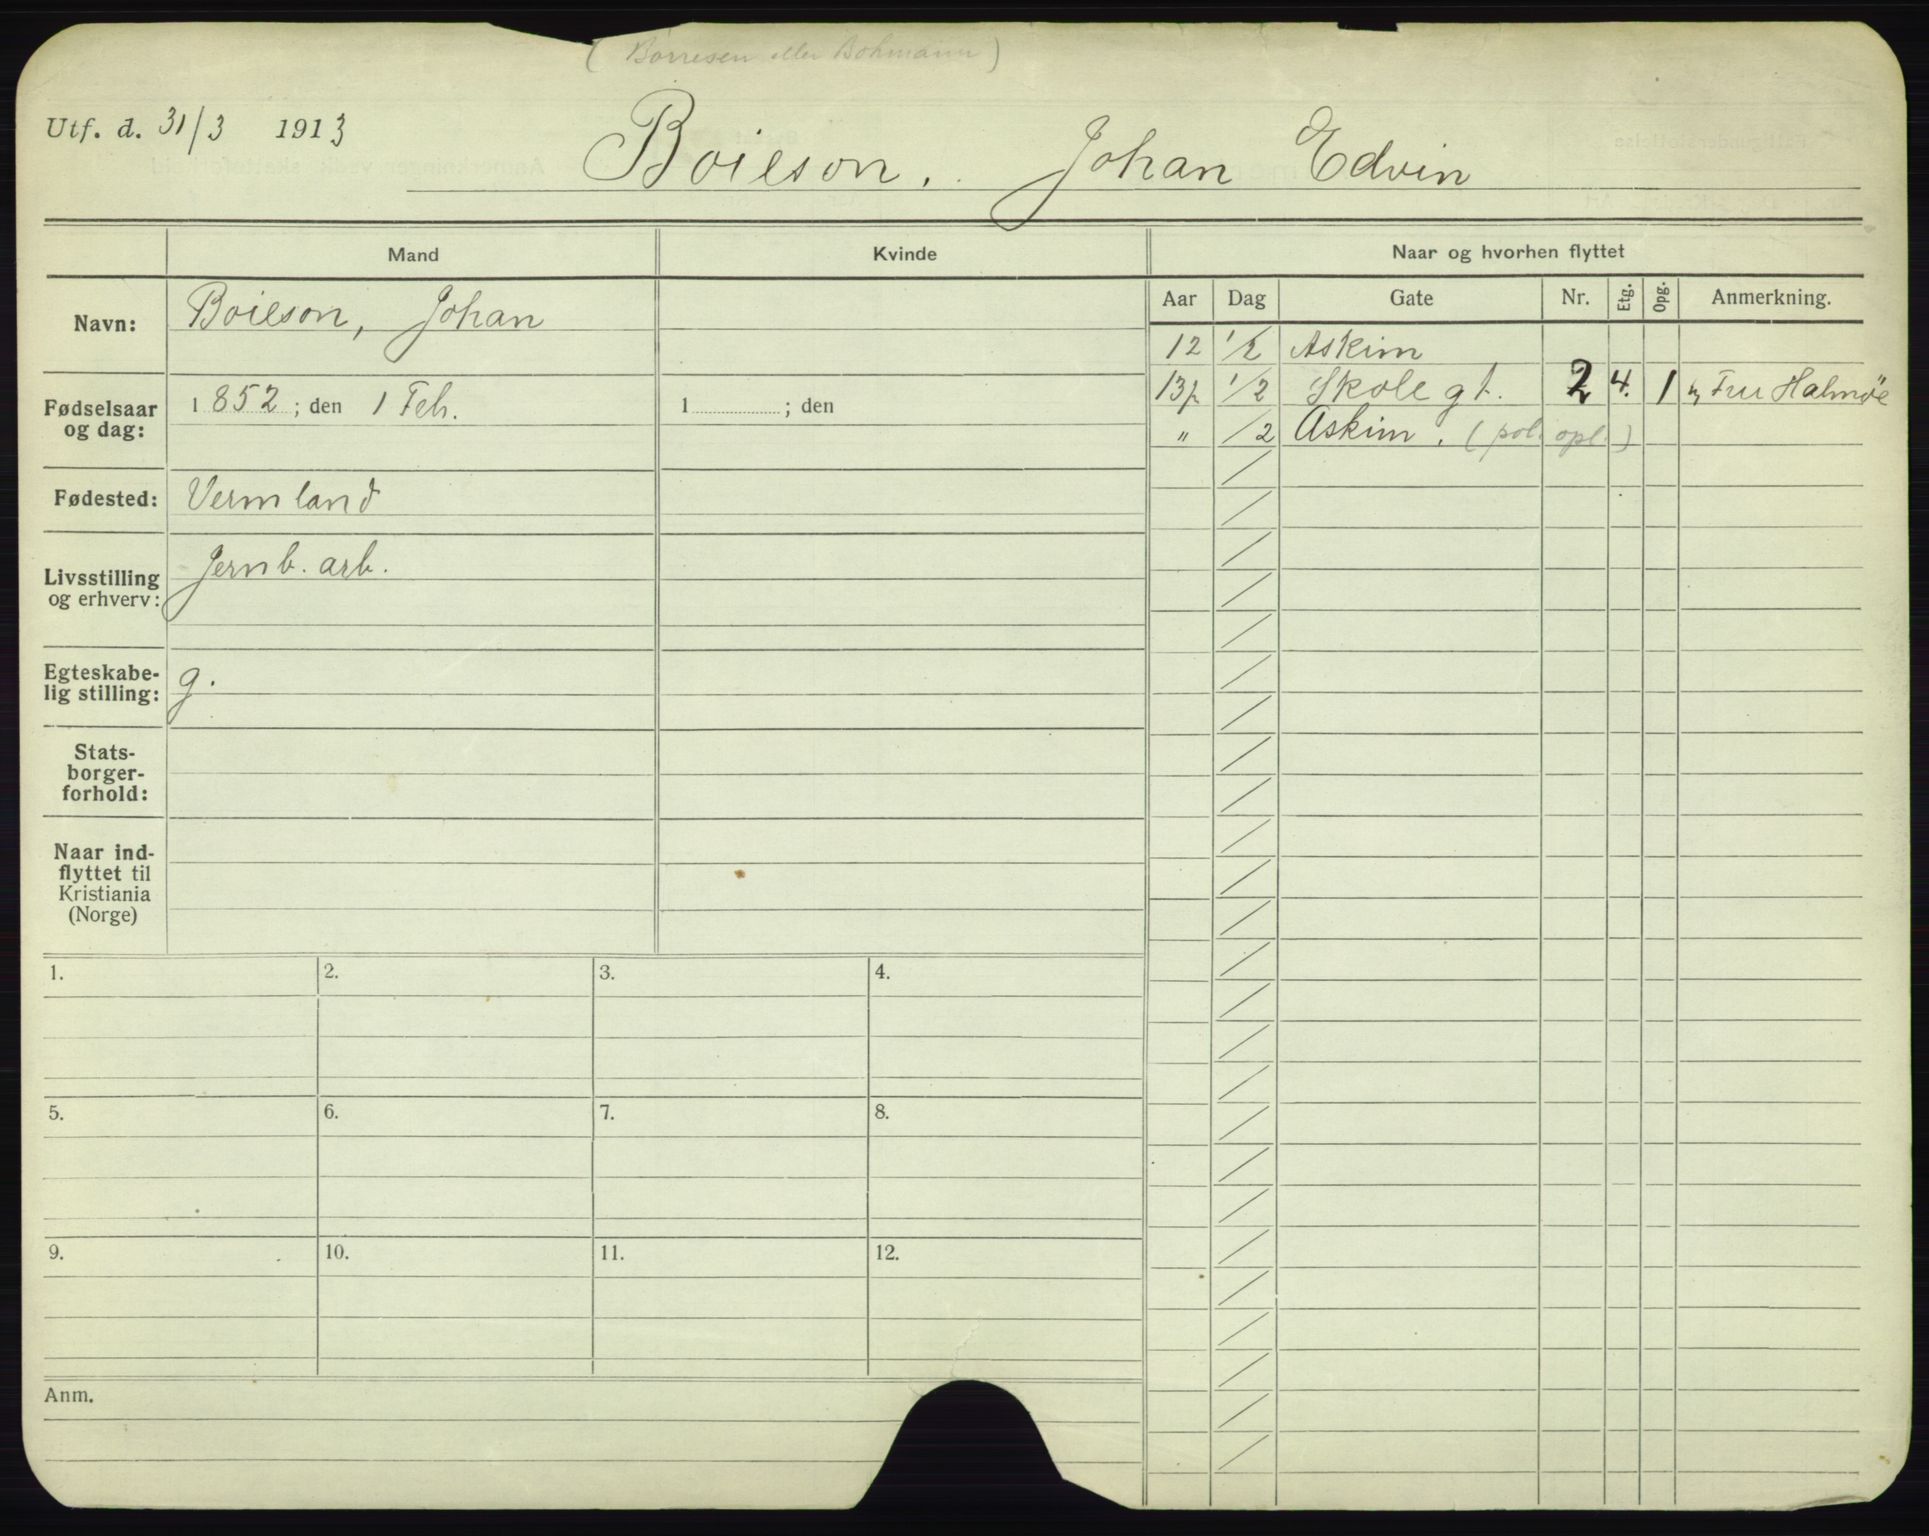 ( Borresen eller Bohmann )
Utf. d. 31/3 1913
Boilson, Johan Edvin
Mand
Kvinde
Naar og hvorhen flyttet
Navn:
Boilson, Johan
Fødselsaar og dag:
1852; den 1 Feb.
1 ; den
Fødested:
Vermland
Livsstilling og erhverv:
Jernb. arb.
Egteskabe-
lig stilling:
g.
Stats-
borger-
forhold:
Naar ind-
flyttet til
Kristiania
(Norge)
Aar Dag Gate Nr. Etg. Opg. Anmerkning.
12 1/2 Askim
13 1/2 Skole gt. 2 4. 1 Fru Halmøe
" /2 Askim. (pol. opl.)
1. 2. 3. 4.
5. 6. 7. 8.
9. 10. 11. 12.
Anm.